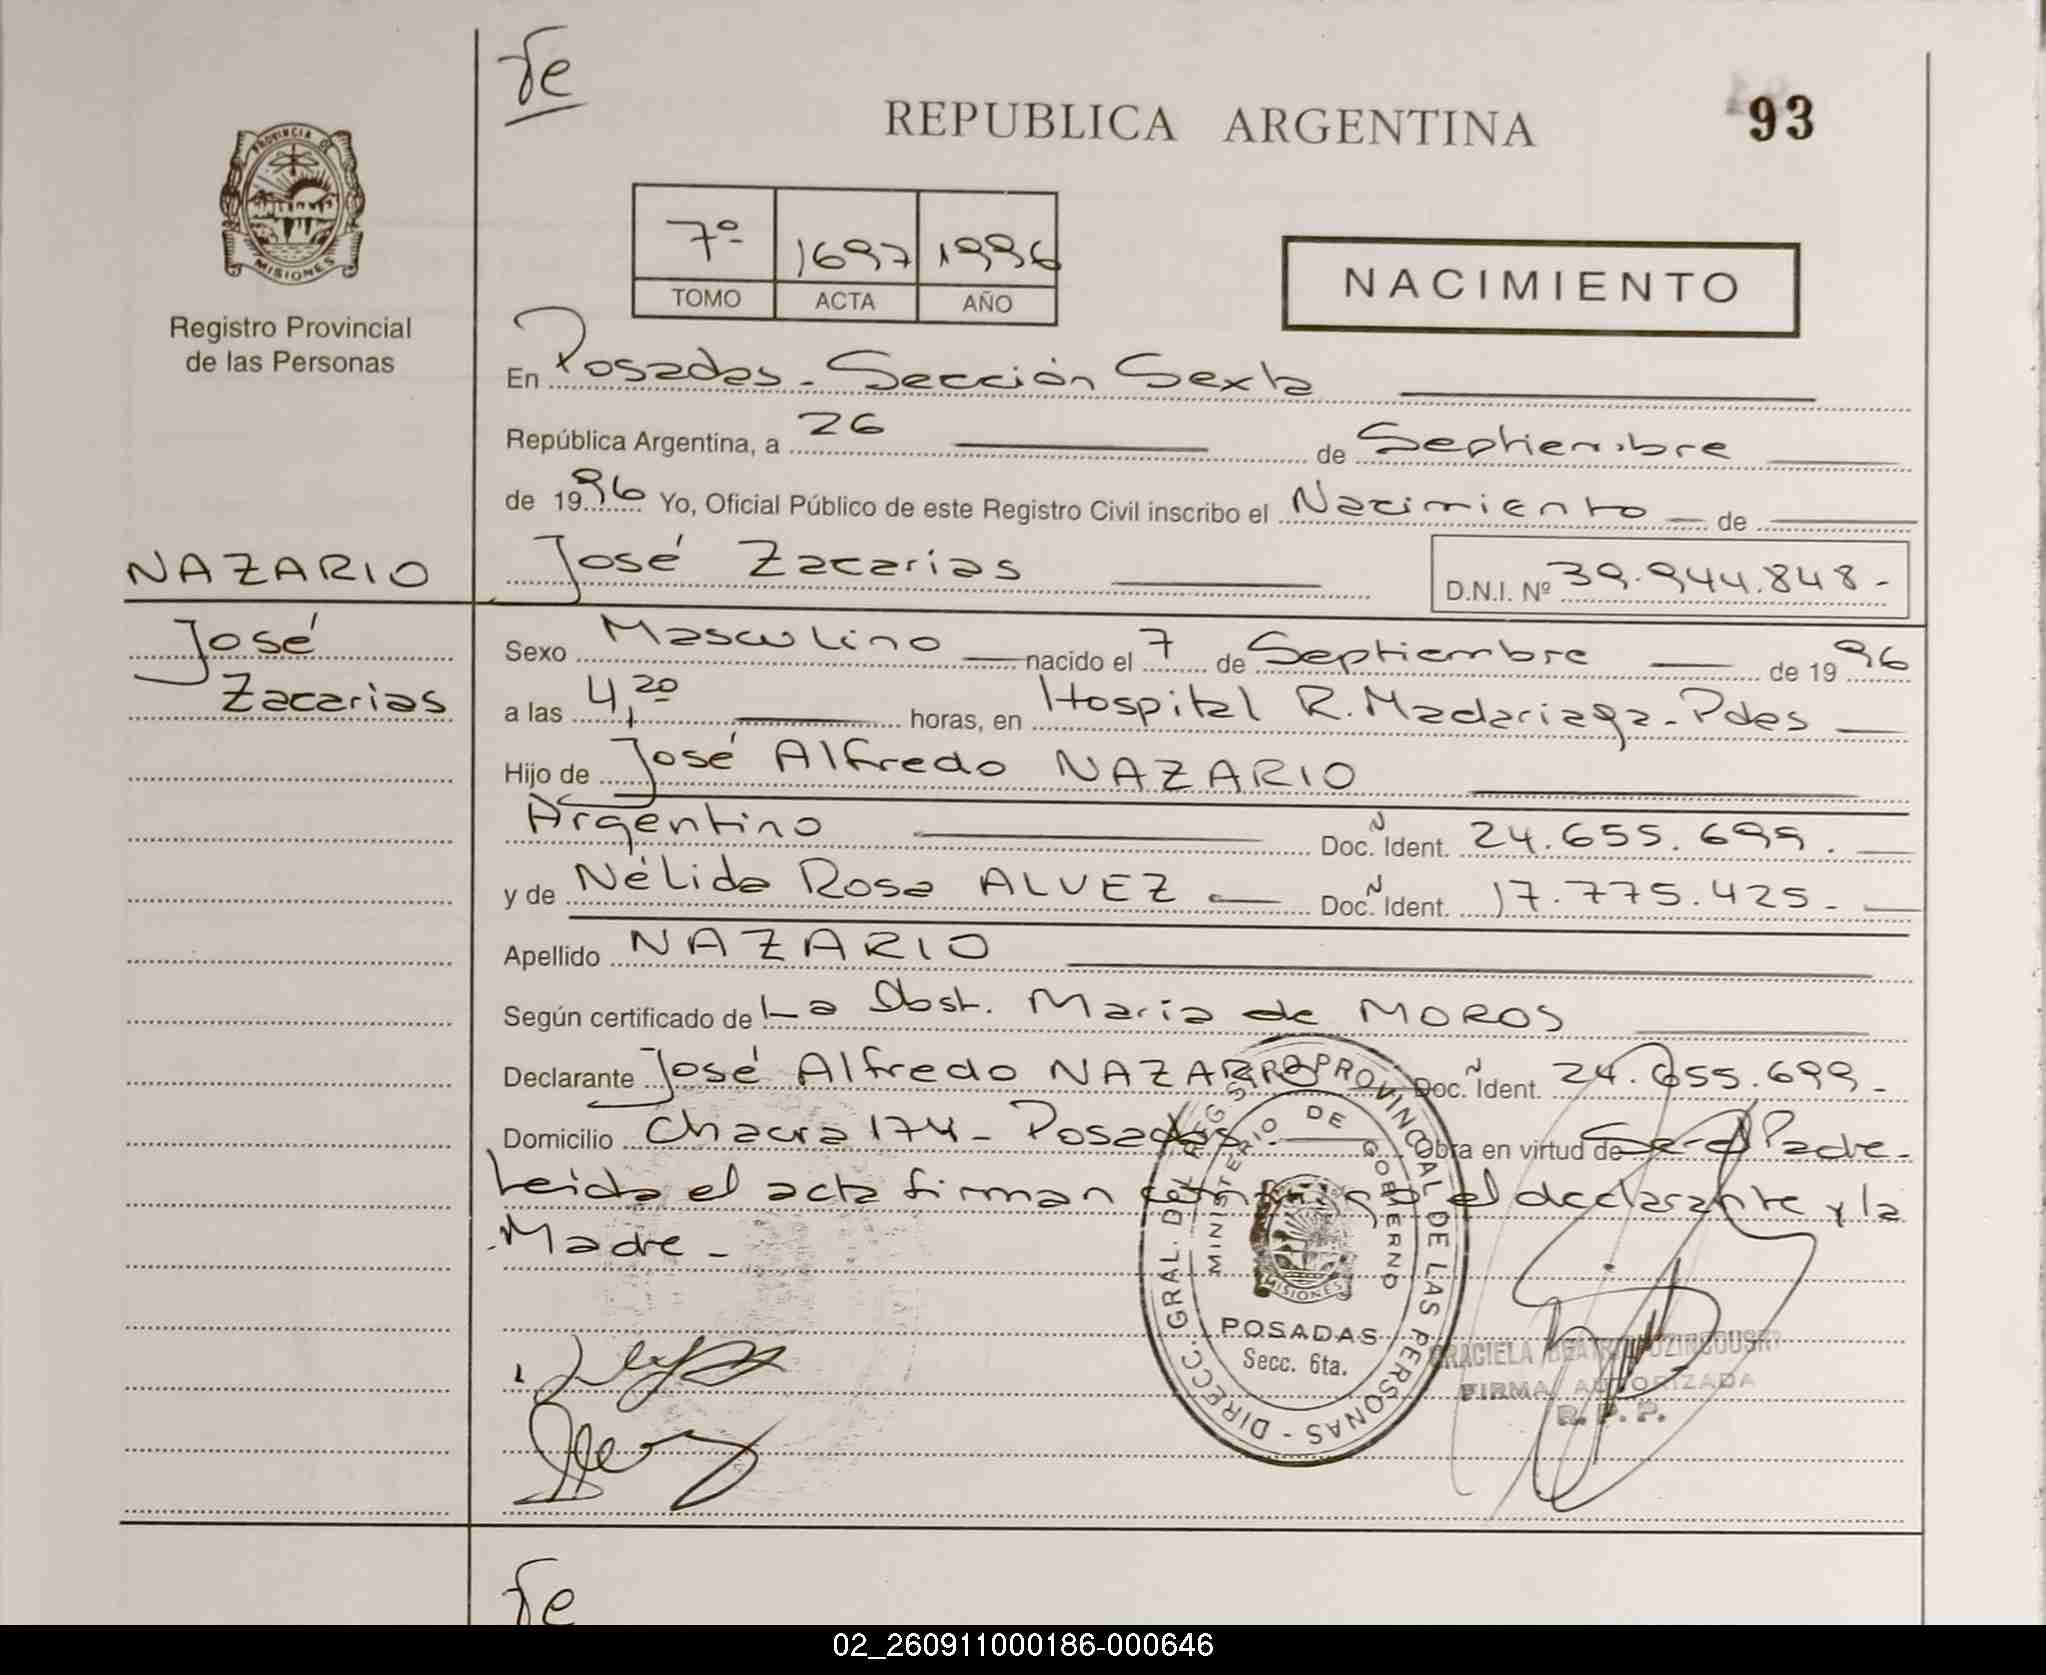 Te
REPUBLICA ARGENTINA
93
PROVINCIA DE
MISIONES
Registro Provincial
de las Personas
7º 1697 1996
TOMO ACTA AÑO
NACIMIENTO
En Posadas - Sección Sexta
República Argentina, a 26 de Septiembre
de 1996 Yo, Oficial Público de este Registro Civil inscribo el Nacimiento de
NAZARIO José Zacarias D.N.I. Nº 39.944.848-
José
Zacarias
Sexo Masculino nacido el 7 de Septiembre de 1996
a las 4,20 horas, en Hospital R. Madariaga - Pdas
Hijo de José Alfredo NAZARIO
Argentino Doc. Ident. N 24.655.699.
y de Nélida Rosa ALVEZ Doc. Ident. N 17.775.425-
Apellido NAZARIO
Según certificado de La Obst. Maria de MOROS
Declarante José Alfredo NAZARIO Doc. Ident. N 24.655.699-
Domicilio Chacra 174 - Posadas. Obra en virtud de Ser el Padre-
Leida el acta firman conmigo el declarante y la
Madre -
DIRECC. GRAL. DEL REGISTRO PROVINCIAL DE LAS PERSONAS -
MINISTERIO DE GOBIERNO
MISIONES
POSADAS
Secc. 6ta.
GRACIELA BEATRIZ
FIRMA AUTORIZADA
R. P. P.
Te
02_260911000186-000646